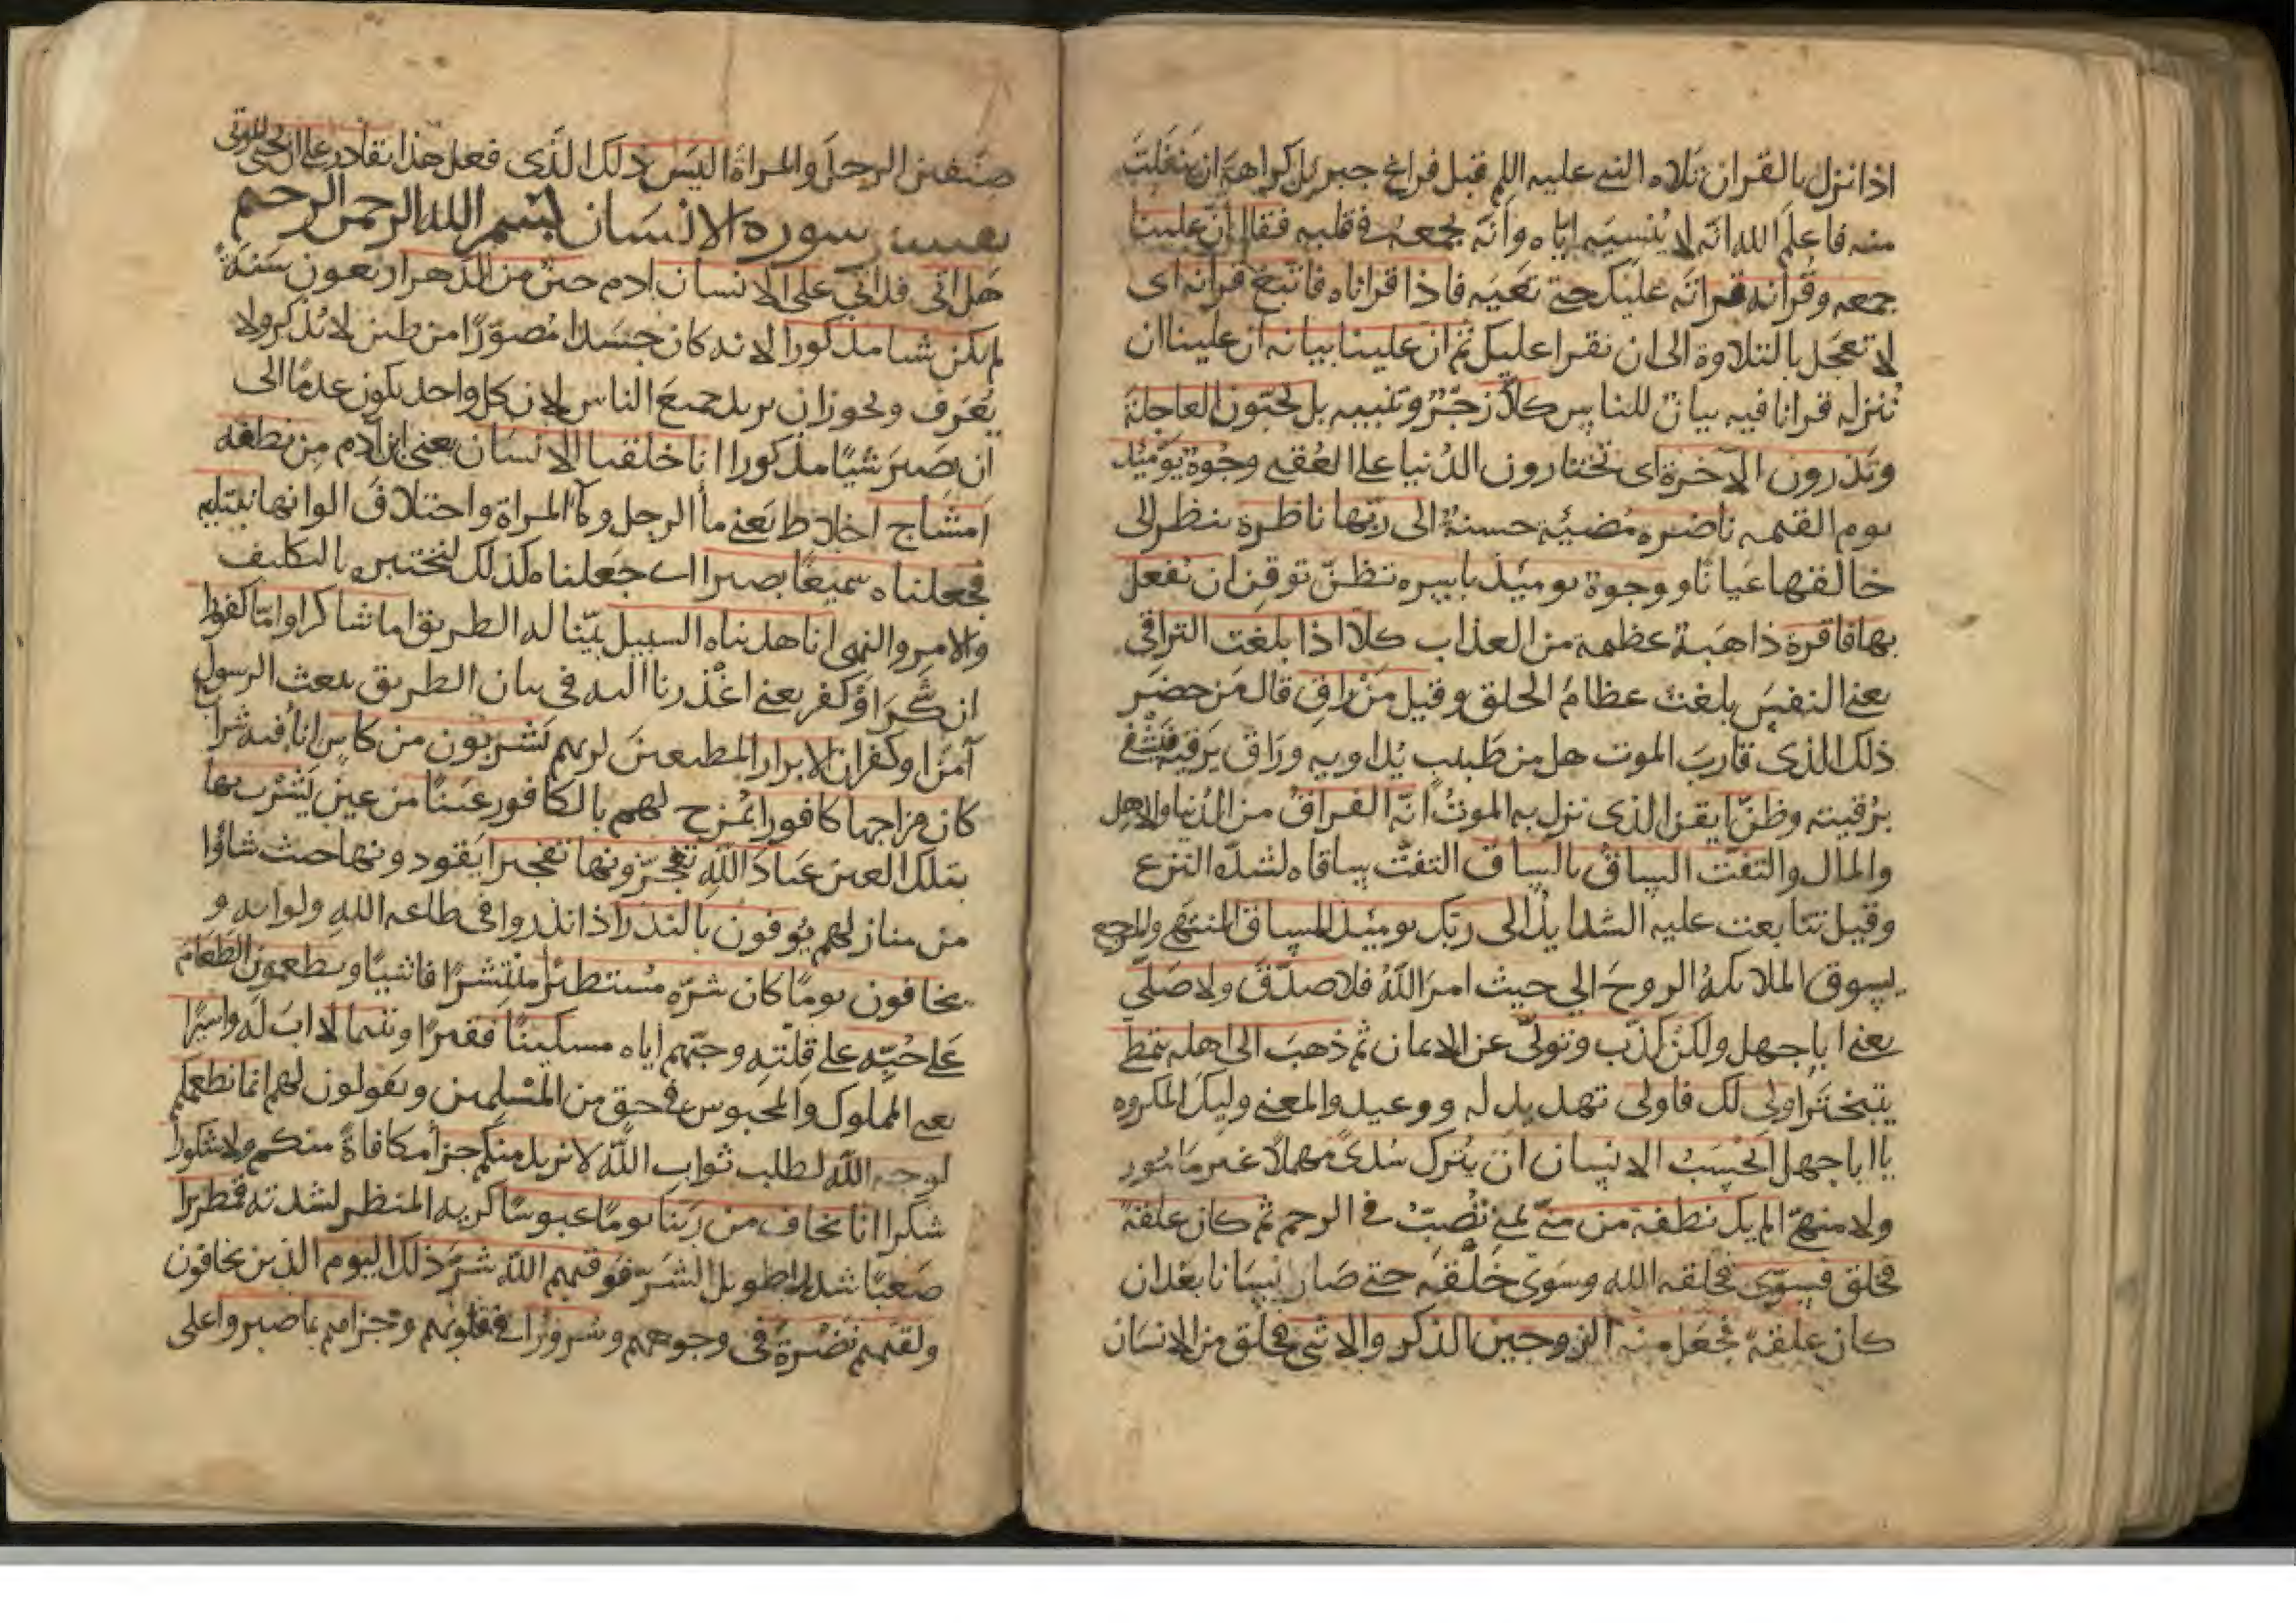 اذا نزل بالقران تلاه النبي عليه السلم قبل فراغ جبريل كراهة ان ينفلت
منه فاعلم الله انه لا ينسيه اياه وانه يجمعه في قلبه فقال ان علينا
جمعه وقرانه قراته عليك حتى تعيه فاذا قراناه فاتبع قرانه اى
لا تعجل بالتلاوة الى ان نقرا عليك ثم ان علينا بيانه ان علينا ان
ننزله قرانا فيه بيان للناس كلا زجر وتنبيه بل تحبون العاجلة
وتذرون الآخرة اى تختارون الدنيا على العقبى وجوة يومئذ
يوم القيمه ناضره مضيئة حسنة الى ربها ناظرة تنظر الى
خالقها عيانا ووجوة يومئذ باسره تظن توقن ان تفعل
بها فاقرة ذاهبة عظيمه من العذاب كلا اذا بلغت التراقي
يعنى النفس بلغت عظام الحلق وقيل من راق قال من حضر
ذلك الذى قارب الموت هل من طبيب يداويه وراق يرقيه فيشفى
برقيته وظن ايقن الذى نزل به الموت انه الفراق من الدنيا والاهل
والمال والتفت الساق بالساق التفت ساقاه لشدة النزع
وقيل تتابعت عليه الشدايد الى ربك يومئذ المساق المنتهى والمرجع
يسوق الملائكة الروح الى حيث امر الله فلا صدق ولا صلى
يعنى ابا جهل ولكن كذب وتولى عن الايمان ثم ذهب الى اهله يتمطى
يتبختر اولى لك فاولى تهديد له ووعيد والمعنى وليك المكروه
يا ابا جهل ايحسب الانسان ان يترك سدى مهملا غير مامور
ولا منهى الم يك نطفة من منى يمنى تصب فى الرحم ثم كان علقة
فخلق فسوى فخلقه الله وسوى خلقه حتى صار انسانا بعد ان
كان علقة فجعل منه الزوجين الذكر والانثى فخلق من الانسان
صنفين الرجل والمراة اليس ذلك الذى فعل هذا بقادر على ان يحيى الموتى
تفسير سورة الانسان بسم الله الرحمن الرحيم
هل اتى قد اتى على الانسان ادم حين من الدهر اربعون سنة
لم يكن شيا مذكورا لانه كان جسدا مصورا من طين لا يذكر ولا
يعرف ويجوز ان يريد جميع الناس لان كل واحد يكون عدما الى
ان يصير شيئا مذكورا انا خلقنا الانسان يعنى ابن آدم من نطفة
امشاج اخلاط يعنى ما الرجل وما المراة واختلاف الوانها نبتليه
فجعلناه سميعا بصيرا اى جعلناه كذلك لنختبره بالتكليف
والامر والنهى انا هديناه السبيل بينا له الطريق اما شاكرا واما كفورا
ان شكر او كفر يعنى اعذرنا اليه فى بيان الطريق ببعث الرسول
آمن او كفر ان الابرار المطيعين لربهم يشربون من كاس اناء فيه شراب
كان مزاجها كافورا يمزج لهم بالكافور عينا من عين يشرب بها
بتلك العين عباد الله يفجرونها تفجيرا يقودونها حيث شاؤا
من منازلهم يوفون بالنذر اذا نذروا فى طاعة الله و
يخافون يوما كان شره مستطيرا منتشرا فاشيا ويطعمون الطعام
على حبه على قلته وحبهم اياه مسكينا فقيرا ويتيما لا اب له واسيرا
يعنى المملوك والمحبوس فى حق من المسلمين ويقولون لهم انما نطعمكم
لوجه الله لطلب ثواب الله لا نريد منكم جزا مكافاة منكم ولا شكورا
شكرا انا نخاف من ربنا يوما عبوسا كريه المنظر لشدته قمطريرا
صعبا شديدا طويل الشر فوقيهم الله شر ذلك اليوم الذين يخافون
ولقيهم نضرة فى وجوههم وسرورا فى قلوبهم وجزاهم بما صبروا على